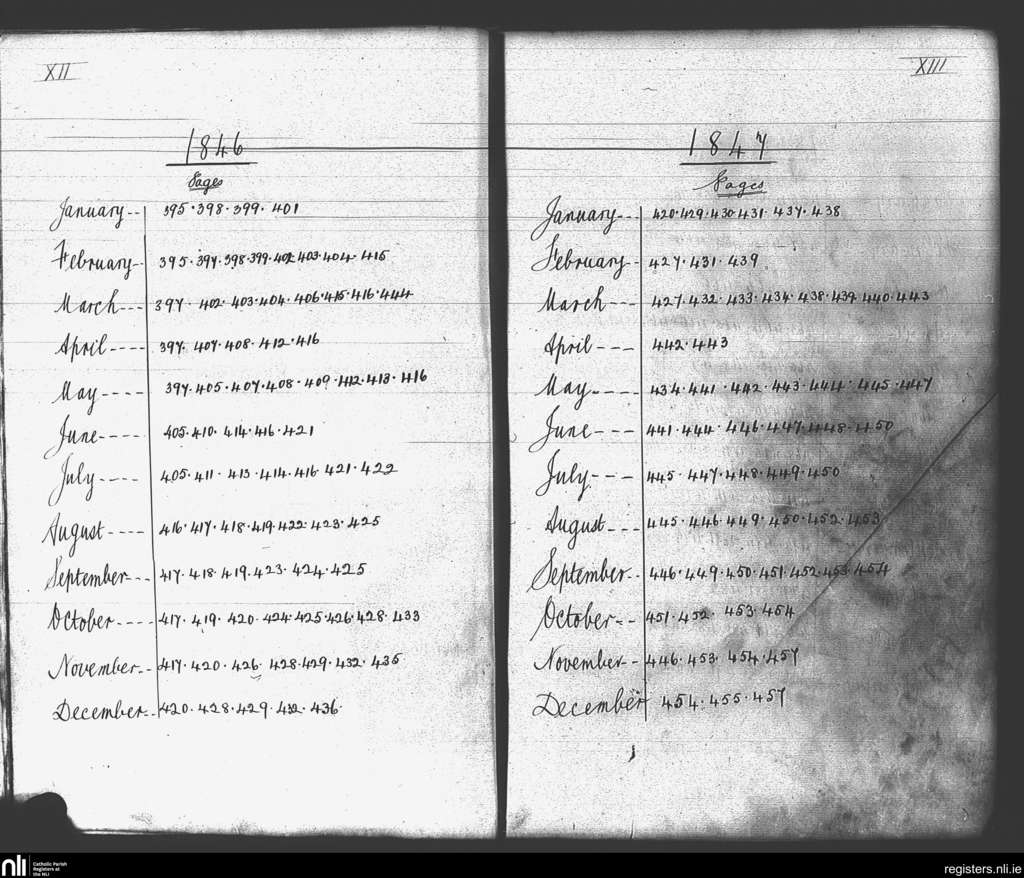 XII
1846
Pages
January-- 395·398·399·401
February-- 395·397·398·399·402·403·404·415
March--- 397·402·403·404·406·415·416·444
April---- 397·407·408·412·416
May----- 397·405·407·408·409·412·413·416
June---- 405·410·414·416·421
July---- 405·411·413·414·416·421·422
August---- 416·417·418·419·422·423·425
September--- 417·418·419·423·424·425
October---- 417·419·420·424·425·426·428·433
November--- 417·420·426·428·429·432·435
December-- 420·428·429·432·436
XIII
1847
Pages
January--- 420·429·430·431·437·438
February-- 427·431·439
March--- 427·432·433·434·438·439·440·443
April--- 442·443
May----- 434·441·442·443·444·445·447
June--- 441·444·446·447·448·450
July--- 445·447·448·449·450
August--- 445·446·449·450·452·453
September-- 446·449·450·451·452·453·454
October--- 451·452·453·454
November-- 446·453·454·457
December 454·455·457
nli Catholic Parish
Registers at
the NLI
registers.nli.ie